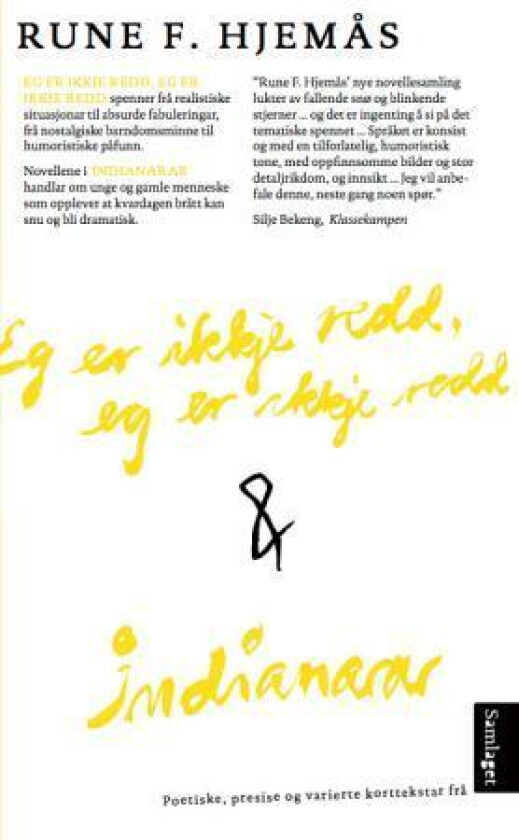 RUNE F. HJEMÅS
EG ER IKKJE REDD, EG ER
IKKJE REDD spenner frå realistiske
situasjonar til absurde fabuleringar,
frå nostalgiske barndomsminne til
humoristiske påfunn.
Novellene i INDIANARAR
handlar om unge og gamle menneske
som opplever at kvardagen brått kan
snu og bli dramatisk.
“Rune F. Hjemås’ nye novellesamling
lukter av fallende snø og blinkende
stjerner ... og det er ingenting å si på det
tematiske spennet ... Språket er konsist
og med en tilforlatelig, humoristisk
tone, med oppfinnsomme bilder og stor
detaljrikdom, og innsikt ... Jeg vil anbe-
fale denne, neste gang noen spør.”
Silje Bekeng, Klassekampen
Eg er ikkje redd,
eg er ikkje redd
&
indianarar
Samlaget
Poetiske, presise og varierte korttekstar frå